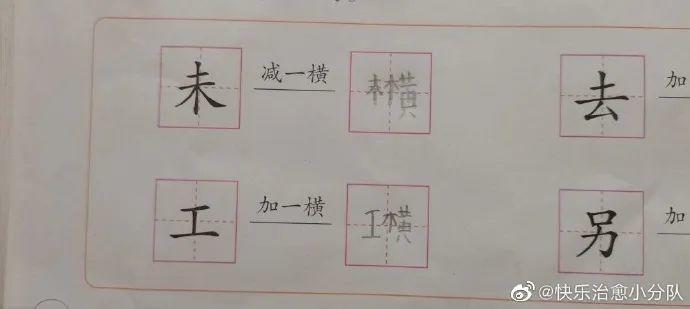 未 减一横 木横 去 加
工 加一横 工横 另 加
@快乐治愈小分队